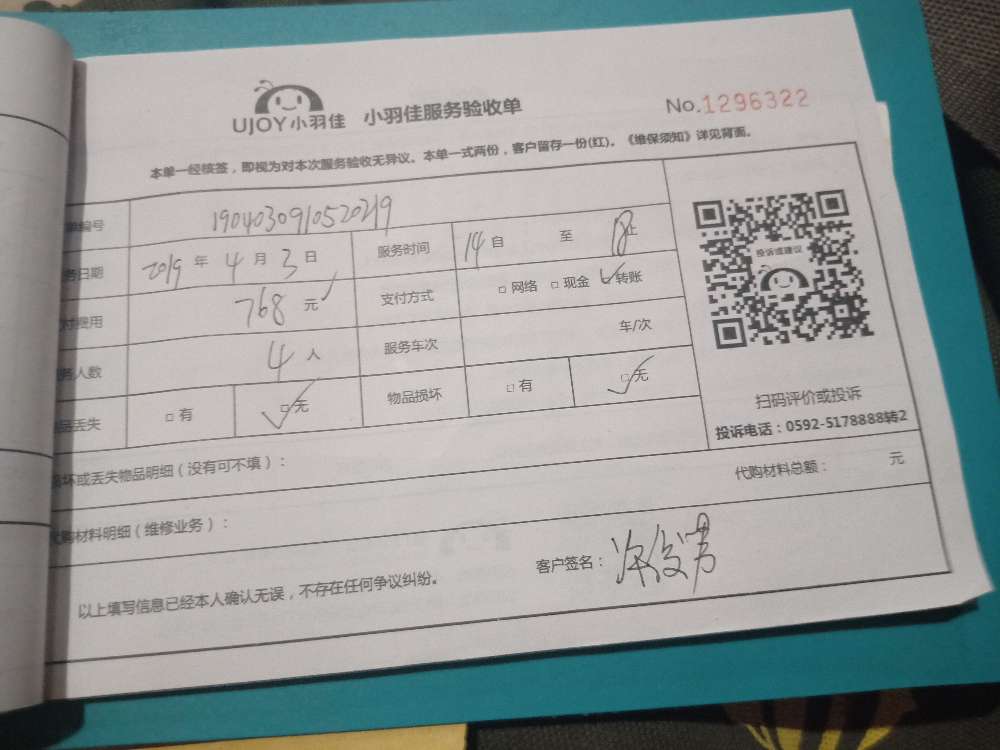 UJOY小羽佳 小羽佳服务验收单 No.1296322
本单一经核签，即视为对本次服务验收无异议。本单一式两份，客户留存一份(红)。《维保须知》详见背面。
单编号 1904030910520219
务日期 2019 年 4 月 3 日 服务时间 14 自 至 18 止
付费用 768 元 支付方式 □ 网络 □ 现金 转账
务人数 4 人 服务车次 车/次
品丢失 □ 有 □ 无 物品损坏 □ 有 □ 无
投诉或建议
扫码评价或投诉
投诉电话：0592-5178888转2
损坏或丢失物品明细（没有可不填）：
代购材料明细（维修业务）： 代购材料总额： 元
以上填写信息已经本人确认无误，不存在任何争议纠纷。 客户签名：